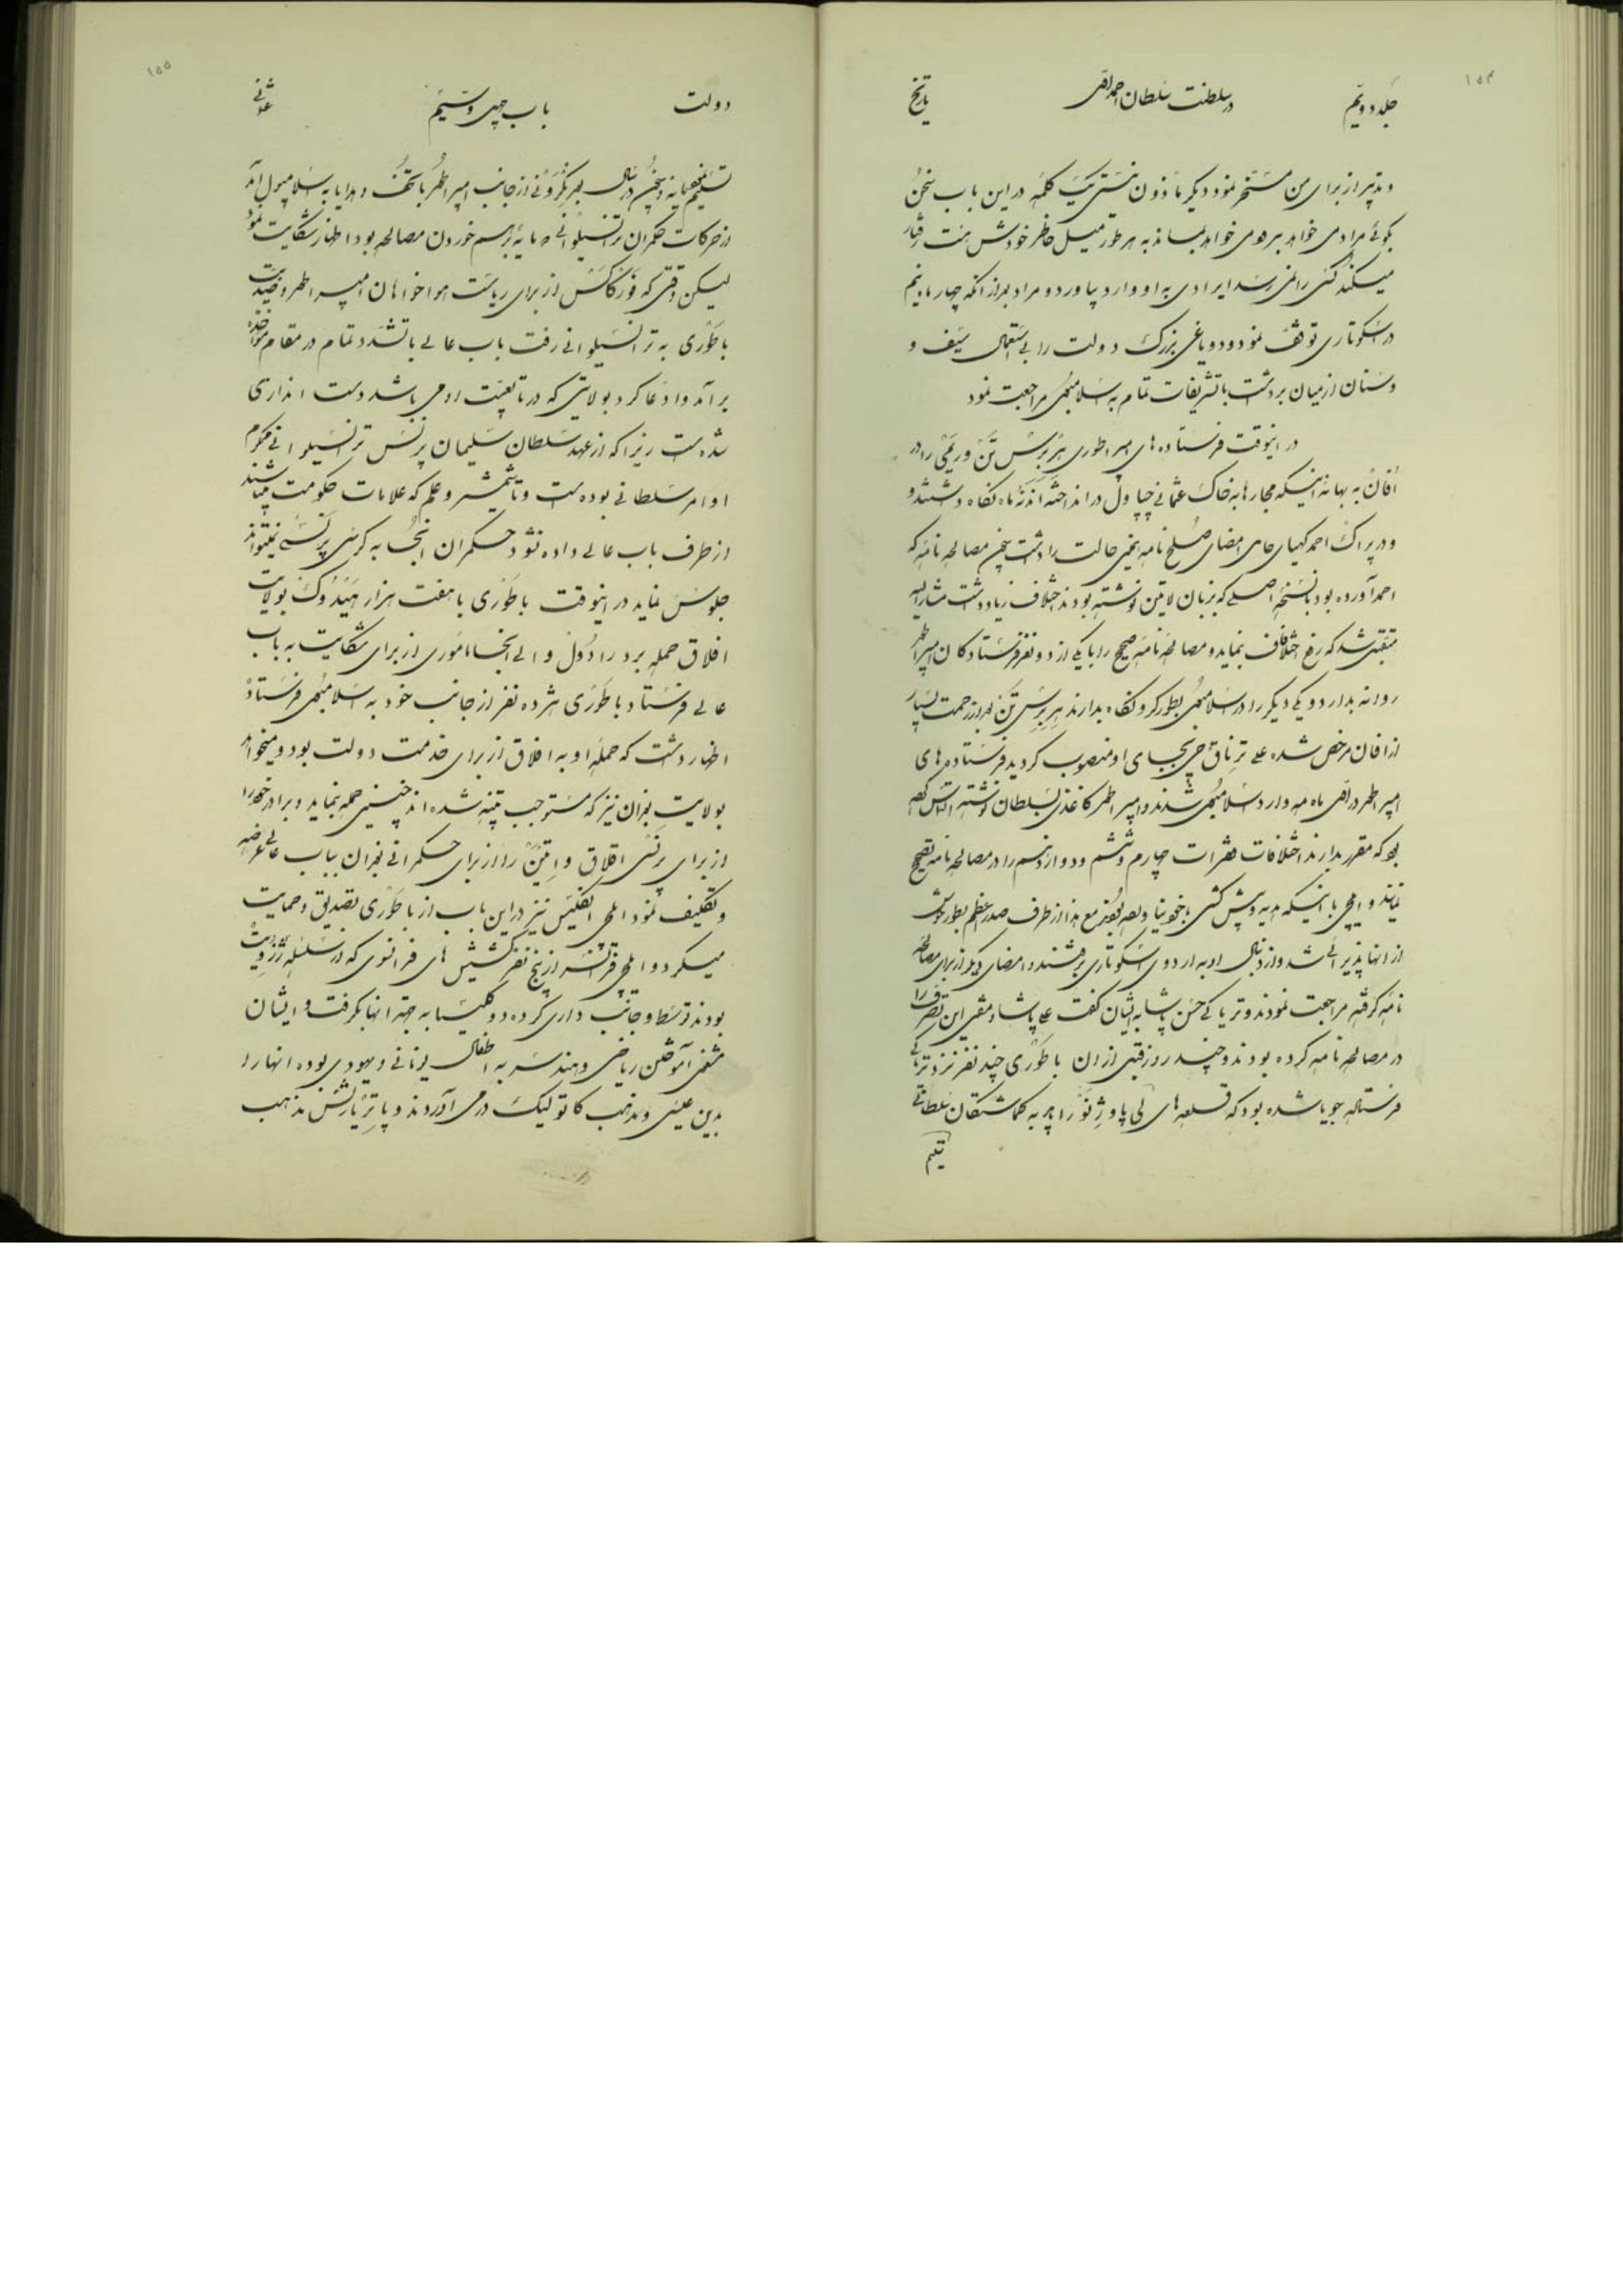 ۱۵۴
جلد دویم
در سلطنت سلطان احمد اول
تاریخ
و پذیر از برای من مسخر نمود دیگر ماذون نیستی یک کلمه در این باب سخن
بگوئی مرادمی خواهد برود می خواهد بماند به هر طور میل خاطر خودش است رفتار
میکند کسی را نمی رسد ایرادی به او وارد بیاورد و مراد بعد از آنکه چهار ماه و نیم
در اسکوتاری توقف نمود و دو یاغی بزرگ دولت را بی استعمال سیف و
و سنان از میان برداشت با تشریفات تمام به اسلامبول مراجعت نمود
در اینوقت فرستاده های امپراطوری را در
افان به بهانه اینکه مجارها به خاک عثمانی چپاول در انداخته اند نه ماه نگاه داشتند و
و در پراگ احمد کهیای حامی امضای صلح نامه همین حالت را داشت چون مصالحه نامه که
احمد آورده بود با نسخه اصلی که بزبان لاتین نوشته بودند اختلاف زیاد داشت مشارالیه
متقبل شد که رفع اختلاف بنماید و مصالحه نامه صحیح را با یکی از دو نفر فرستادگان امپراطور
روانه بدارد و یکی دیگر را در اسلامبول بطور گرو نگاه بدارند بعد از زحمت بسیار
از افان مرخص شده علی ترناق چی بجای او منصوب گردید فرستاده های
امپراطور در ماه مه وارد اسلامبول شدند و امپراطور کاغذی بسلطان نوشته التماس کرده
بود که مقرر بدارند اختلافات فقرات چهارم و ششم و دوازدهم را در مصالحه نامه تصحیح
نمایند و ایلچی با اینکه هدیه و پیش کشی با خود نیاورده بود مع هذا از طرف صدر اعظم بطور خوش
از آنها پذیرائی شد و از دنبال او به اردوی اسکوتاری رفتند و امضای دیگر از برای مصالحه
نامه گرفته مراجعت نمودند و تریاکی حسن پاشا به ایشان گفت علی پاشا و مفتی این تصرف را
در مصالحه نامه کرده بودند و چند روز قبل از آن باطوری چند نفر نزد تریاکی
فرستاده جویا شده بود که قلعه های لی پا و ژنو را چرا به گماشتگان سلطانی
تسلیم
۱۵۵
دولت
باب چهل و سیم
عثمانی
تسلیم نمی نمایند از جانب امپراطور با تحف و هدایا به اسلامبول آمد
از حرکات حکمران ترانسیلوانی که مایه برهم خوردن مصالحه بود اظهار شکایت نمود
لیکن وقتی که از برای ریاست هواخواهان امپراطور و ضدیت
باطوری به ترانسیلوانی رفت باب عالی با تشدد تمام در مقام مواخذه
برآمد و ادعا کرد بولایتی که در تابعیت او می باشد دست اندازی
شده است زیرا که از عهد سلطان سلیمان پرنس ترانسیلوانی محکوم
اوامر سلطانی بوده است و تا شمشیر و علم که علامات حکومت میباشند
از طرف باب عالی داده نشود حکمران آنجا به کرسی پرنسی نمیتواند
جلوس نماید در اینوقت باطوری با هفت هزار هیدوک بولایت
افلاق حمله برد رادول والی آنجا مأموری از برای شکایت به باب
عالی فرستاد باطوری هژده نفر از جانب خود به اسلامبول فرستاد
اظهار داشت که حمله او به افلاق از برای خدمت دولت بود و میخواهد
بولایت بغدان نیز که مستوجب تنبیه شده اند چنین حمله بنماید و برادر خود را
از برای پرنسی افلاق و را از برای حکمرانی بغدان بباب عالی عرضه
و تکلیف نمود ایلچی انگلیس نیز در این باب از باطوری تصدیق و حمایت
میکرد و ایلچی فرانسه از پنج نفر کشیش های فرانسوی که در سلسله ژزویت
بودند توسط و جانب داری کرده دو کلیسا به جهة آنها بگرفت و ایشان
شغلی آموختن ریاضی و هندسه به اطفال یونانی و یهودی بوده آنها را
بدین عیسی و مذهب کاتولیک در می آوردند و پاتریارش مذهب